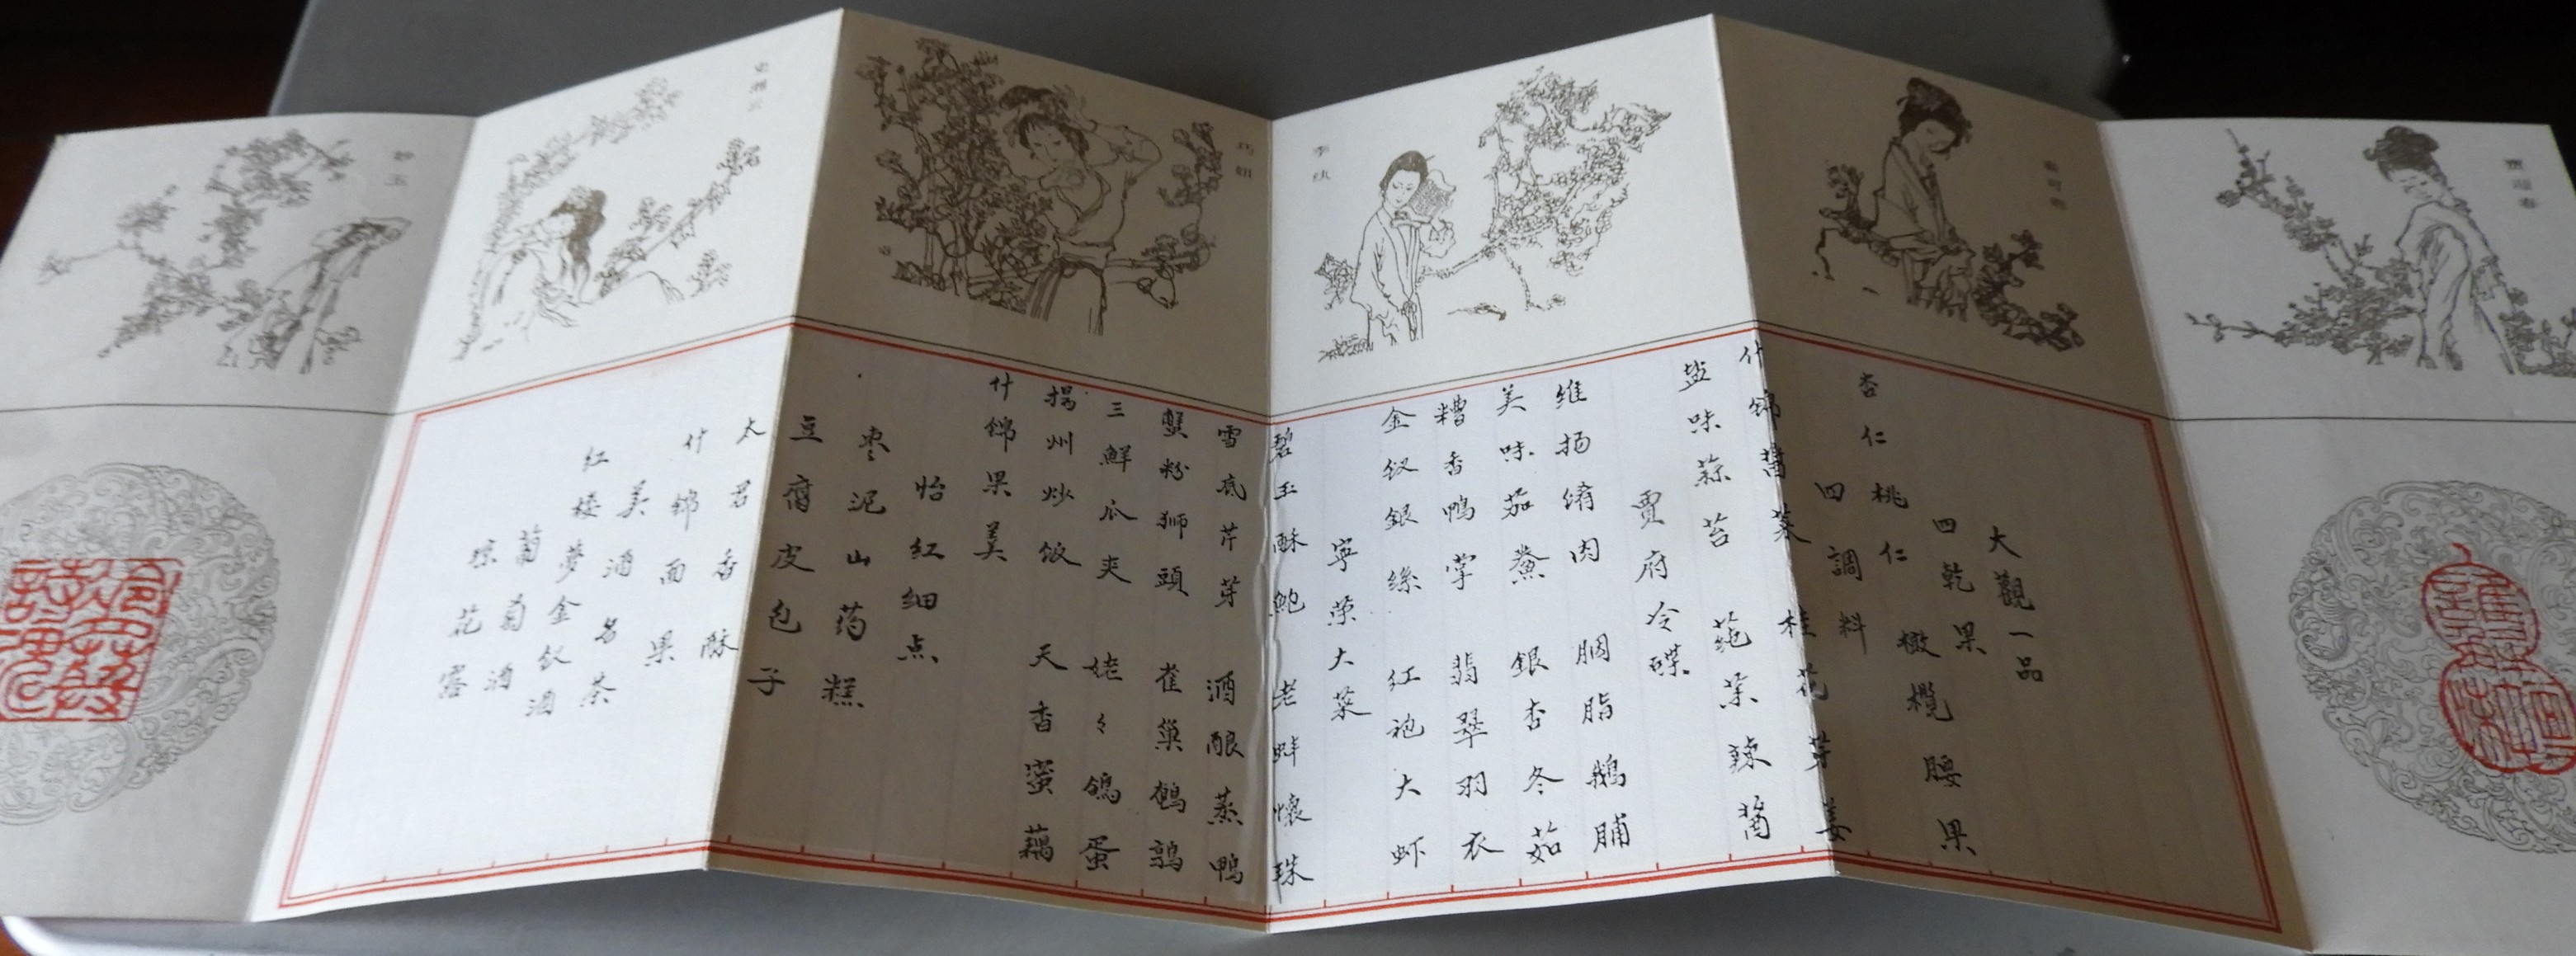 大觀一品
四乾果
杏仁 桃仁 橄欖 腰果
四調料
什錦醬菜 桂花芽姜
盐味蒜苔 蒓菜辣酱
賈府冷碟
维扬肴肉 胭脂鵝脯
美味茄鲞 銀杏冬茹
糟香鴨掌 翡翠羽衣
金釵銀絲 红袍大虾
寧荣大菜
碧玉酥鲍 老蚌懷珠
雪底芹芽 酒酿蒸鴨
蟹粉狮頭 雀巢鹌鹑
三鮮瓜夹 姥々鴿蛋
揚州炒饭 天香蜜藕
什錦果羹
怡红细点
枣泥山药糕
豆腐皮包子
太君香酥
什锦面果
美酒名茶
红楼夢金钗酒
葡萄酒
琼花露
妙玉
史湘云
巧姐
李纨
秦可卿
賈迎春